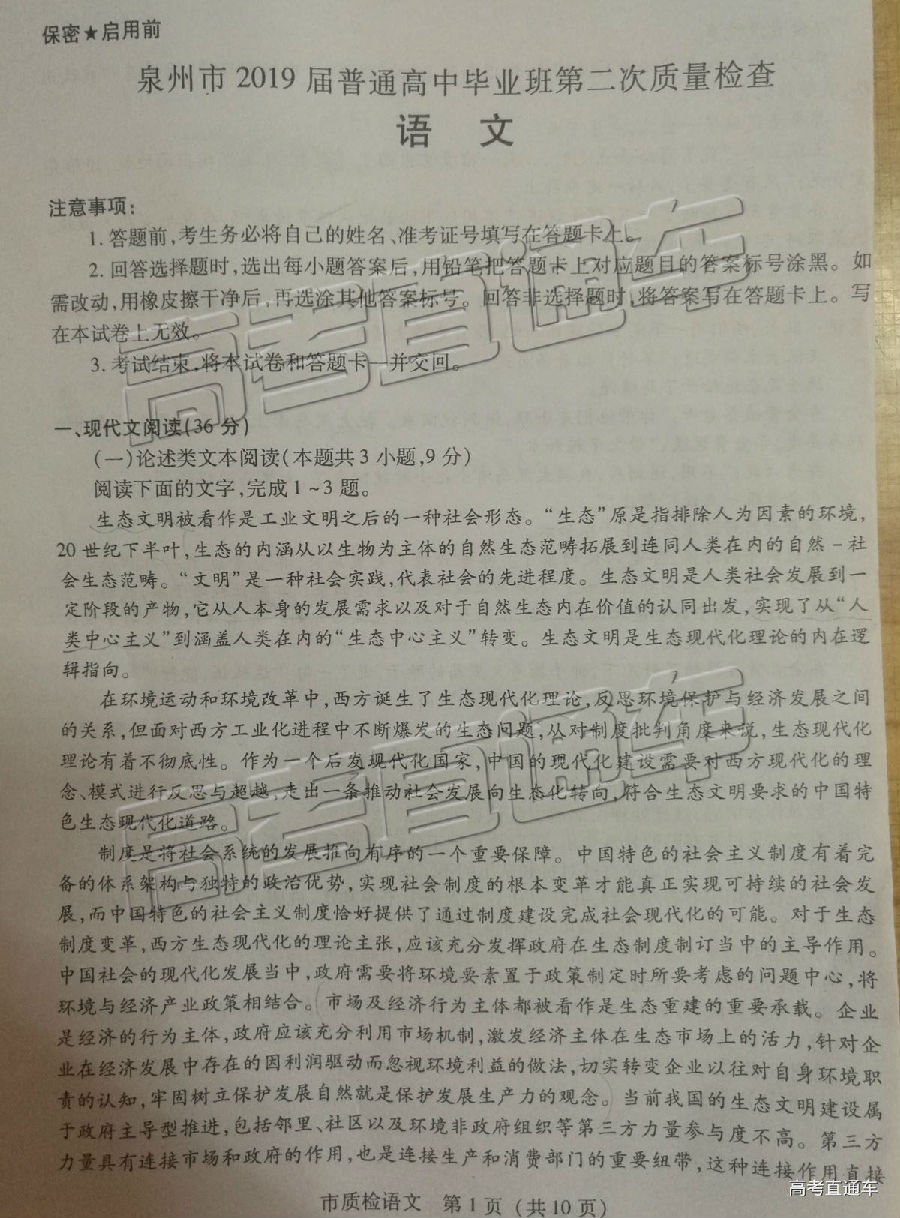 保密★启用前
泉州市2019届普通高中毕业班第二次质量检查
语 文
注意事项:
1.答题前,考生务必将自己的姓名、准考证号填写在答题卡上。
2.回答选择题时,选出每小题答案后,用铅笔把答题卡上对应题目的答案标号涂黑。如
需改动,用橡皮擦干净后,再选涂其他答案标号。回答非选择题时,将答案写在答题卡上。写
在本试卷上无效。
3.考试结束,将本试卷和答题卡一并交回。
一、现代文阅读(36分)
(一)论述类文本阅读(本题共3小题,9分)
阅读下面的文字,完成1~3题。
生态文明被看作是工业文明之后的一种社会形态。“生态”原是指排除人为因素的环境,
20世纪下半叶,生态的内涵从以生物为主体的自然生态范畴拓展到连同人类在内的自然-社
会生态范畴。“文明”是一种社会实践,代表社会的先进程度。生态文明是人类社会发展到一
定阶段的产物,它从人本身的发展需求以及对于自然生态内在价值的认同出发,实现了从“人
类中心主义”到涵盖人类在内的“生态中心主义”转变。生态文明是生态现代化理论的内在逻
辑指向。
在环境运动和环境改革中,西方诞生了生态现代化理论,反思环境保护与经济发展之间
的关系,但面对西方工业化进程中不断爆发的生态问题,从对制度批判角度来说,生态现代化
理论有着不彻底性。作为一个后发现代化国家,中国的现代化建设需要对西方现代化的理
念、模式进行反思与超越,走出一条推动社会发展向生态化转向,符合生态文明要求的中国特
色生态现代化道路。
制度是将社会系统的发展推向有序的一个重要保障。中国特色的社会主义制度有着完
备的体系架构与独特的政治优势,实现社会制度的根本变革才能真正实现可持续的社会发
展,而中国特色的社会主义制度恰好提供了通过制度建设完成社会现代化的可能。对于生态
制度变革,西方生态现代化的理论主张,应该充分发挥政府在生态制度制订当中的主导作用。
中国社会的现代化发展当中,政府需要将环境要素置于政策制定时所要考虑的问题中心,将
环境与经济产业政策相结合。市场及经济行为主体都被看作是生态重建的重要承载。企业
是经济的行为主体,政府应该充分利用市场机制,激发经济主体在生态市场上的活力,针对企
业在经济发展中存在的因利润驱动而忽视环境利益的做法,切实转变企业以往对自身环境职
责的认知,牢固树立保护发展自然就是保护发展生产力的观念。当前我国的生态文明建设属
于政府主导型推进,包括邻里、社区以及环境非政府组织等第三方力量参与度不高。第三方
力量具有连接市场和政府的作用,也是连接生产和消费部门的重要纽带,这种连接作用直接
市质检语文 第1页(共10页)
高考直通车
高考直通车
高考直通车